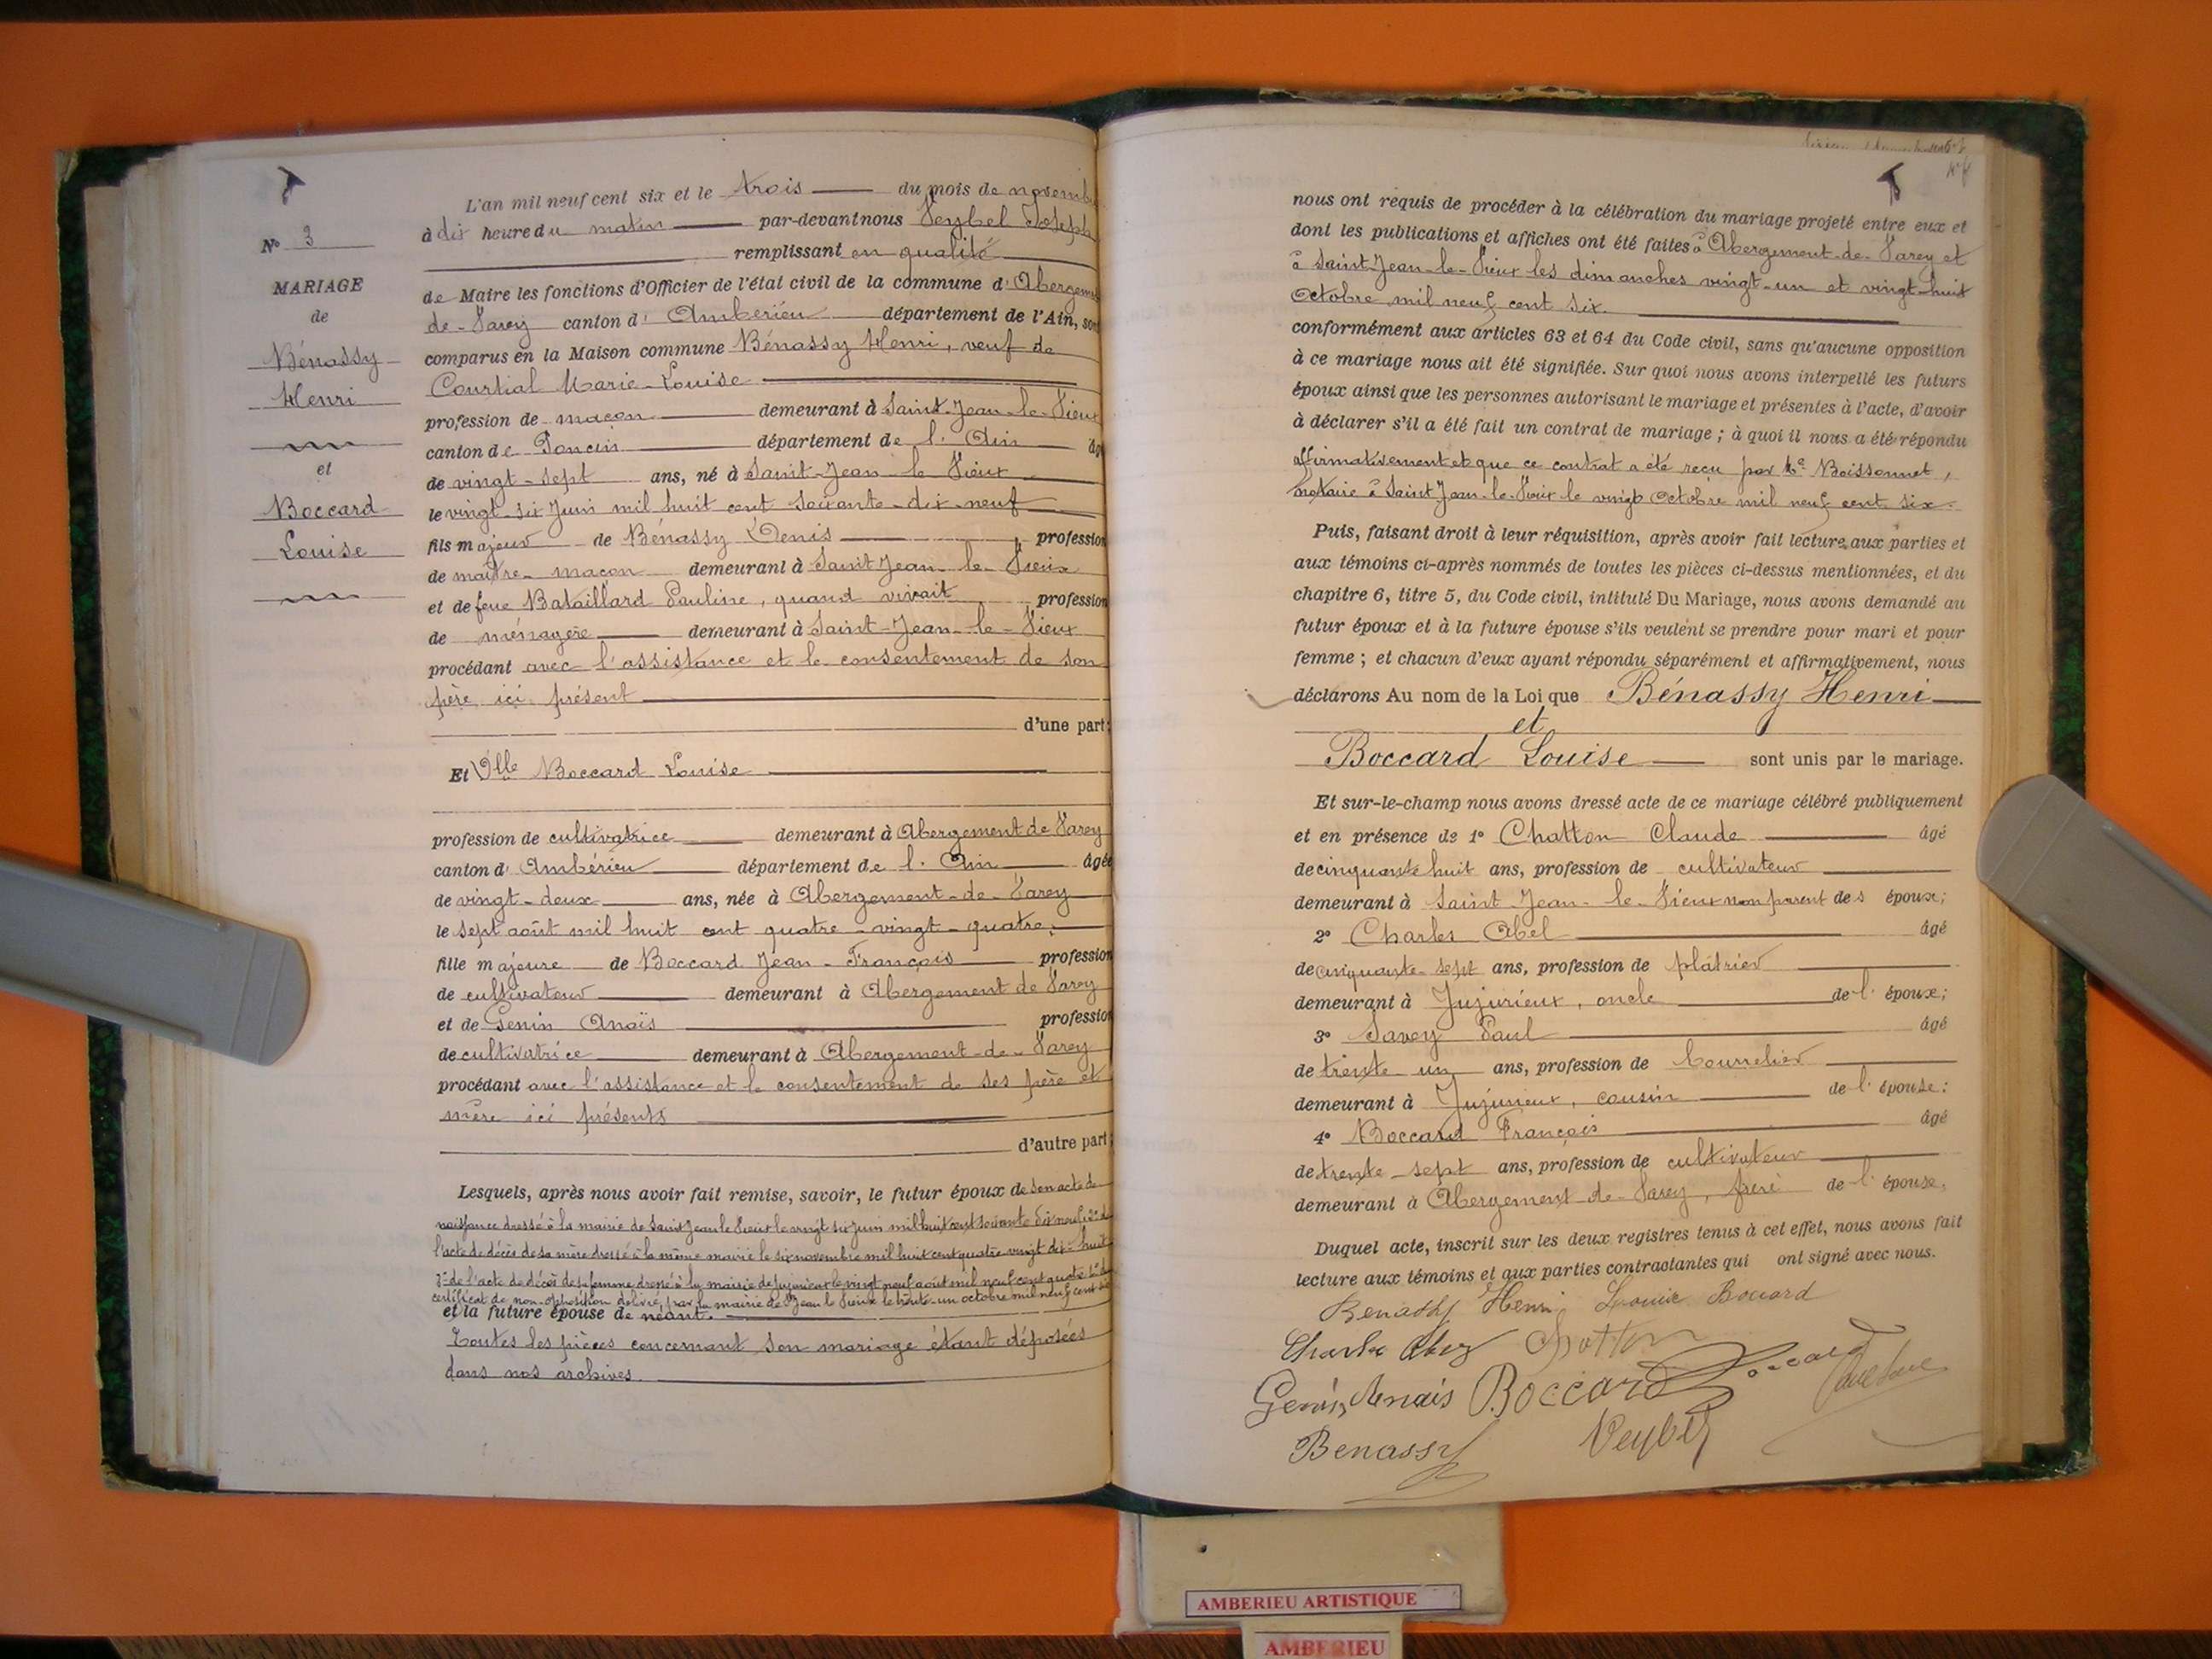 N° 3
MARIAGE
de
Bénassy
Henri
et
Boccard
Louise
L'an mil neuf cent six et le trois du mois de novemb
à dix heure du matin par-devant nous Veybel Joseph
remplissant en qualité
de Maire les fonctions d'Officier de l'état civil de la commune d'Abergeme
de-Varey canton d' Ambérieu département de l'Ain, son
comparus en la Maison commune Bénassy Henri, veuf de
Courtial Marie-Louise
profession de maçon demeurant à Saint-Jean-le-Vieux
canton de Poncin département de l' Ain âg
de vingt-sept ans, né à Saint-Jean-le Vieux
le vingt-six Juin mil huit cent soixante-dix-neuf
fils majeur de Bénassy Denis profession
de maître-maçon demeurant à Saint Jean-le-Vieux
et de feue Bataillard Pauline, quand vivait profession
de ménagère demeurant à Saint-Jean-le-Vieux
procédant avec l'assistance et le consentement de son
père ici présent
d'une part;
Et Dlle Boccard Louise
profession de cultivatrice demeurant à Abergement de Varey
canton d' Ambérieu département de l' Ain âgée
de vingt-deux ans, née à Abergement-de-Varey
le sept août mil huit cent quatre-vingt-quatre,
fille majeure de Boccard Jean-François profession
de cultivateur demeurant à Abergement de Varey
et de Genin Anaïs profession
de cultivatrice demeurant à Abergement-de-Varey
procédant avec l'assistance et le consentement de ses père et
mère ici présents
d'autre part;
Lesquels, après nous avoir fait remise, savoir, le futur époux de son acte de
naissance dressé à la mairie de Saint Jean le Vieux le vingt six juin mil huit cent soixante dix neuf; 2° de
l'acte de décès de sa mère dressé à la même mairie le six novembre mil huit cent quatre-vingt dix-huit
3° de l'acte de décès de sa femme, dressé à la mairie de Jujurieux le vingt neuf août mil neuf cent quatre 4° du
certificat de non-opposition délivré par la mairie de St Jean le Vieux le trente-un octobre mil neuf cent six
et la future épouse de néant.
Toutes les pièces concernant son mariage étant déposées
dans nos archives.
nous ont requis de procéder à la célébration du mariage projeté entre eux et
dont les publications et affiches ont été faites à Abergement-de-Varey et
à Saint-Jean-le-Vieux les dimanches vingt-un et vingt-huit
Octobre mil neuf cent six.
conformément aux articles 63 et 64 du Code civil, sans qu'aucune opposition
à ce mariage nous ait été signifiée. Sur quoi nous avons interpellé les futurs
époux ainsi que les personnes autorisant le mariage et présentes à l'acte, d'avoir
à déclarer s'il a été fait un contrat de mariage ; à quoi il nous a été répondu
affirmativement et que ce contrat a été reçu par Me Boissonnet,
notaire à Saint Jean-le-Vieux le vingt Octobre mil neuf cent six.
Puis, faisant droit à leur réquisition, après avoir fait lecture aux parties et
aux témoins ci-après nommés de toutes les pièces ci-dessus mentionnées, et du
chapitre 6, titre 5, du Code civil, intitulé Du Mariage, nous avons demandé au
futur époux et à la future épouse s'ils veulent se prendre pour mari et pour
femme ; et chacun d'eux ayant répondu séparément et affirmativement, nous
déclarons Au nom de la Loi que Bénassy Henri
et
Boccard Louise sont unis par le mariage.
Et sur-le-champ nous avons dressé acte de ce mariage célébré publiquement
et en présence de 1° Chatton Claude âgé
de cinquante huit ans, profession de cultivateur
demeurant à Saint-Jean-le-Vieux non parent des époux;
2° Charles Abel âgé
de cinquante-sept ans, profession de plâtrier
demeurant à Jujurieux, oncle de l' époux;
3° Savey Paul âgé
de trente-un ans, profession de bourrelier
demeurant à Jujurieux, cousin de l' épouse;
4° Boccard François âgé
de trente-sept ans, profession de cultivateur
demeurant à Abergement-de-Varey, frère de l' épouse,
Duquel acte, inscrit sur les deux registres tenus à cet effet, nous avons fait
lecture aux témoins et aux parties contractantes qui ont signé avec nous.
Benassy Henri Louise Boccard
Charles Abel Chatton
Genin Anais Boccard Boccard
Benassy Veybel
AMBERIEU ARTISTIQUE
AMBERIEU